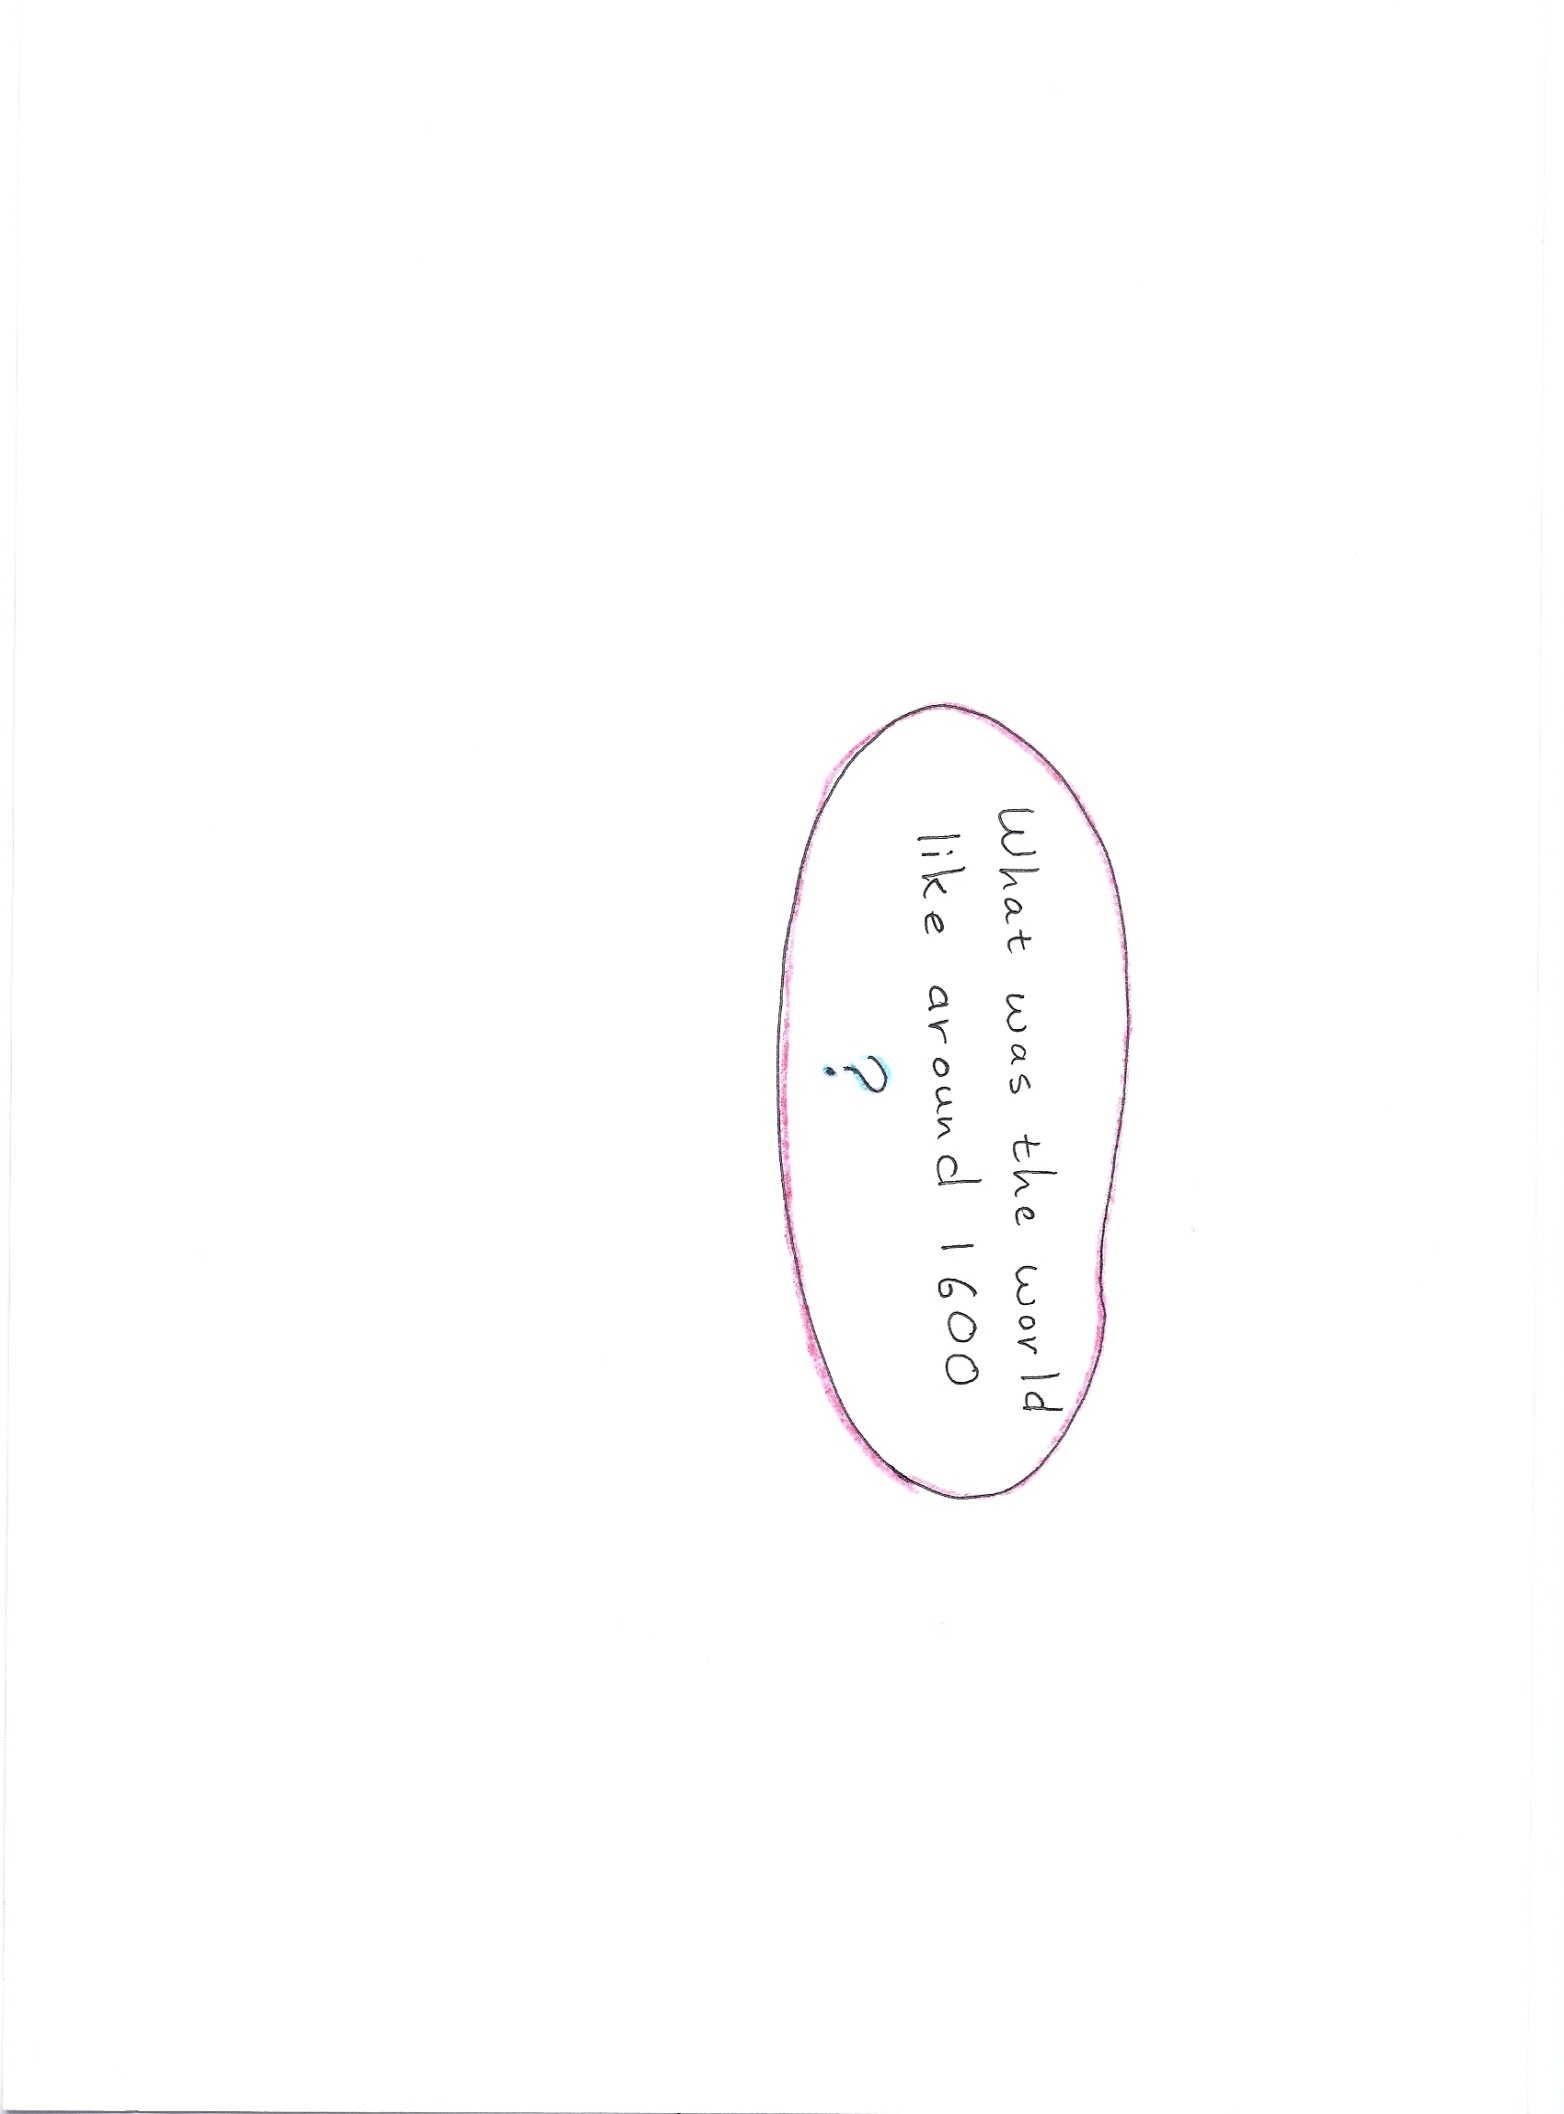 What was the world
like around 1600
?